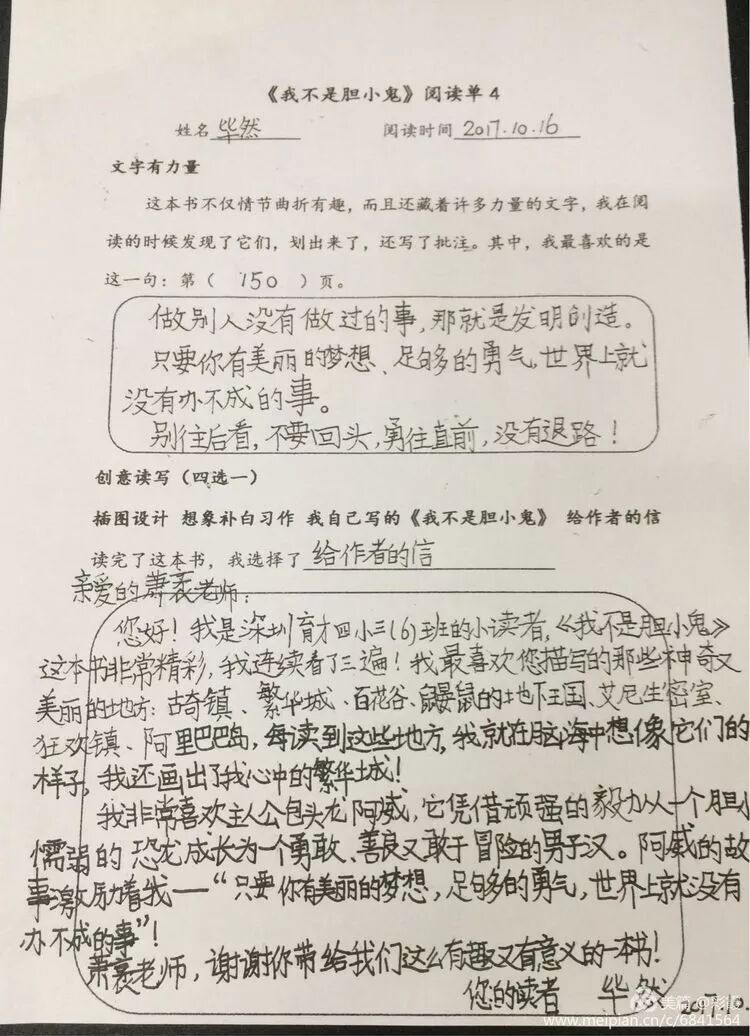 《我不是胆小鬼》阅读单4
姓名 毕然 阅读时间 2017.10.16
文字有力量
这本书不仅情节曲折有趣，而且还藏着许多力量的文字，我在阅
读的时候发现了它们，划出来了，还写了批注。其中，我最喜欢的是
这一句：第（ 150 ）页。
做别人没有做过的事，那就是发明创造。
只要你有美丽的梦想、足够的勇气，世界上就
没有办不成的事。
别往后看，不要回头，勇往直前，没有退路！
创意读写（四选一）
插图设计 想象补白习作 我自己写的《我不是胆小鬼》 给作者的信
读完了这本书，我选择了 给作者的信
亲爱的萧袤老师：
您好！我是深圳育才四小三(6)班的小读者，《我不是胆小鬼》
这本书非常精彩，我连续看了三遍！我最喜欢您描写的那些神奇又
美丽的地方：古奇镇、繁华城、百花谷、鼹鼠的地下王国、艾尼生密室、
狂欢镇、阿里巴巴岛，每读到这些地方，我就在脑海中想像它们的
样子，我还画出了我心中的繁华城！
我非常喜欢主人公包头龙阿威，它凭借顽强的毅力从一个胆小
懦弱的恐龙成长为一个勇敢、善良又敢于冒险的男子汉。阿威的故
事激励着我——“只要你有美丽的梦想，足够的勇气，世界上就没有
办不成的事”！
萧袤老师，谢谢你带给我们这么有趣又有意义的一本书！
您的读者 毕然
2017.10.
美篇
www.meipian.cn/c/6841564